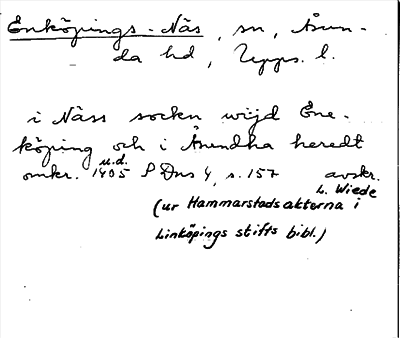 Enköpings-Näs, sn, Åsun-
da hd, Upps. l.
i Näss sockn wijd Ene-
köping och i Åsundha heredt
omkr. u.d. 1405 SDns 4, s. 157 avskr.
L. Wiede
(ur Hammarstadsakterna i
Linköpings stifts bibl.)